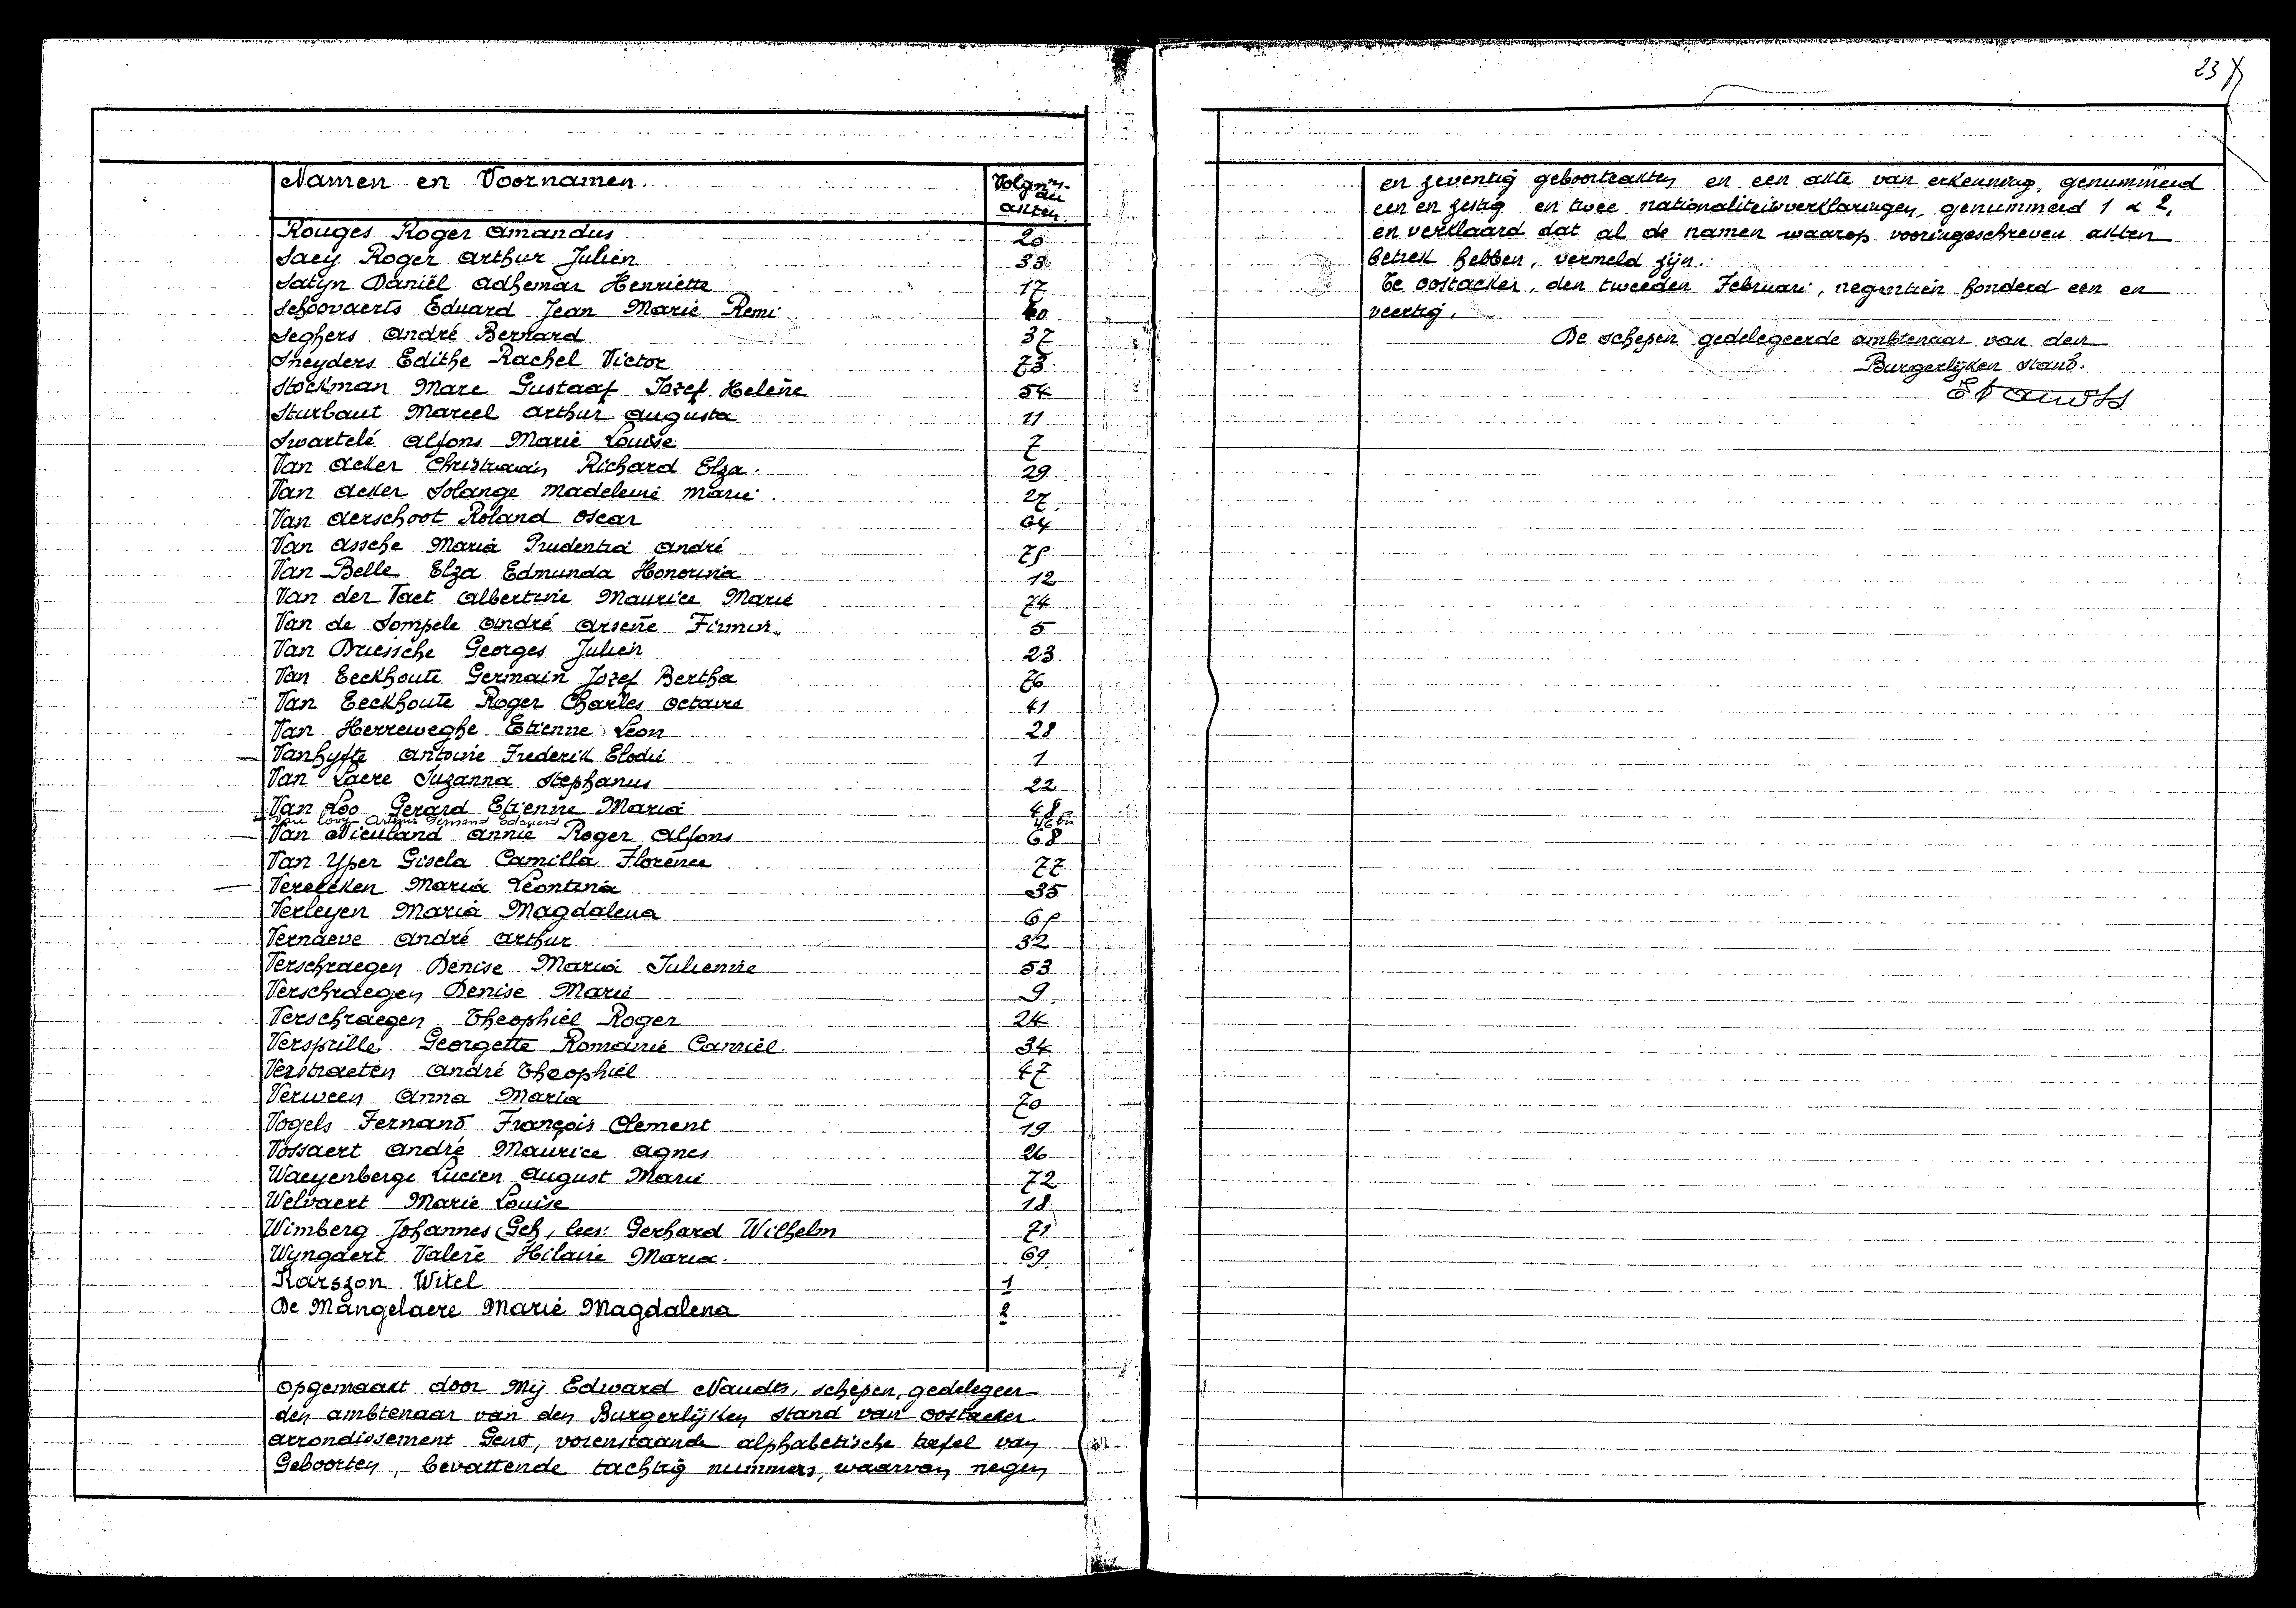 Namen en Voornamen Volgnrs. der akten.
Rouges Roger Amandus 20
Saey Roger Arthur Julien 33
Satyn Daniël Adhemar Henriette 17
Schoovaerts Eduard Jean Marie Remi 40
Seghers André Bernard 37
Sneyders Edithe Rachel Victor 73
Stockman Marc Gustaaf Jozef Helène 54
Sturbaut Marcel Arthur Augusta 11
Swartelé Alfons Marie Louise 7
Van Acker Christiaan Richard Elza. 29
Van Acker Solange Madeleine Marie. 27.
Van Aerschoot Roland Oscar 64
Van Assche Maria Prudentia André 75
Van Belle Elza Edmunda Honorina 12
Van der Taet Albertine Maurice Marie 74
Van de Sompele André Arsène Firmin. 5
Van Driessche Georges Julien 23
Van Eeckhoute Germain Jozef Bertha 76
Van Eeckhoute Roger Charles Octavie 41
Van Herreweghe Etienne Léon 28
Vanhyfte Antoine Frederik Elodie 1
Van Laere Suzanna Stephanus 22
Van Loo Gerard Etienne Maria 48
Van Looy Fernand Edouard 46bis
Van Nieuland Annie Roger Alfons 68
Van Yper Gisela Camilla Florence 77
Verecken Maria Leontina 35
Verleyen Maria Magdalena
Vernaeve André Arthur 32
Verschraegen Denise Maria Julienne 53
Verschraegen Denise Marie 9
Verschraegen Theophiel Roger 24
Versprille Georgette Romanie Camiel. 34
Verstraeten André Theophiel 47
Verween Anna Maria 70
Vogels Fernand François Clement 19
Vossaert André Maurice Agnes 26
Waeyenberge Lucien August Marie 72
Welvaert Marie Louise 18
Wimberg Johannes Geh, lees: Gerhard Wilhelm 71
Wyngaert Valère Hilaire Maria. 69
Karszon Witel 1
De Mangelaere Marie Magdalena 2
Opgemaakt door Mij Edward Naudts, schepen, gedelegeer-
den ambtenaar van den Burgerlijken stand van Oostacker
arrondissement Gent, vorenstaande alphabetische tafel van
Geboorten, bevattende tachtig nummers, waarvan negen
23
en zeventig geboorteakten en een akte van erkenning, genummerd
een en zestig en twee nationaliteitsverklaringen, genummerd 1 & 2,
en verklaard dat al de namen waarop vooringeschreven akten
betrek hebben, vermeld zijn.
Te Oostacker, den tweeden Februari, negentien honderd een en
veertig.
De schepen gedelegeerde ambtenaar van den
Burgerlijken stand.